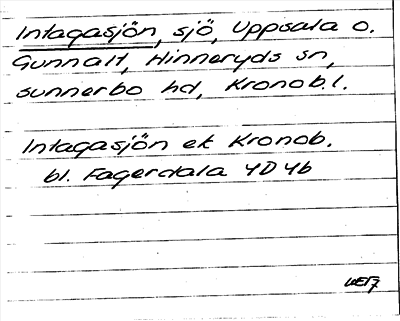 Intagasjön, sjö, Uppsala o.
Gunnalt, Hinneryds sn,
Sunnerbo hd, Kronob.l.
Intagasjön ek Kronob.
bl. Fagerdala 4D 4b